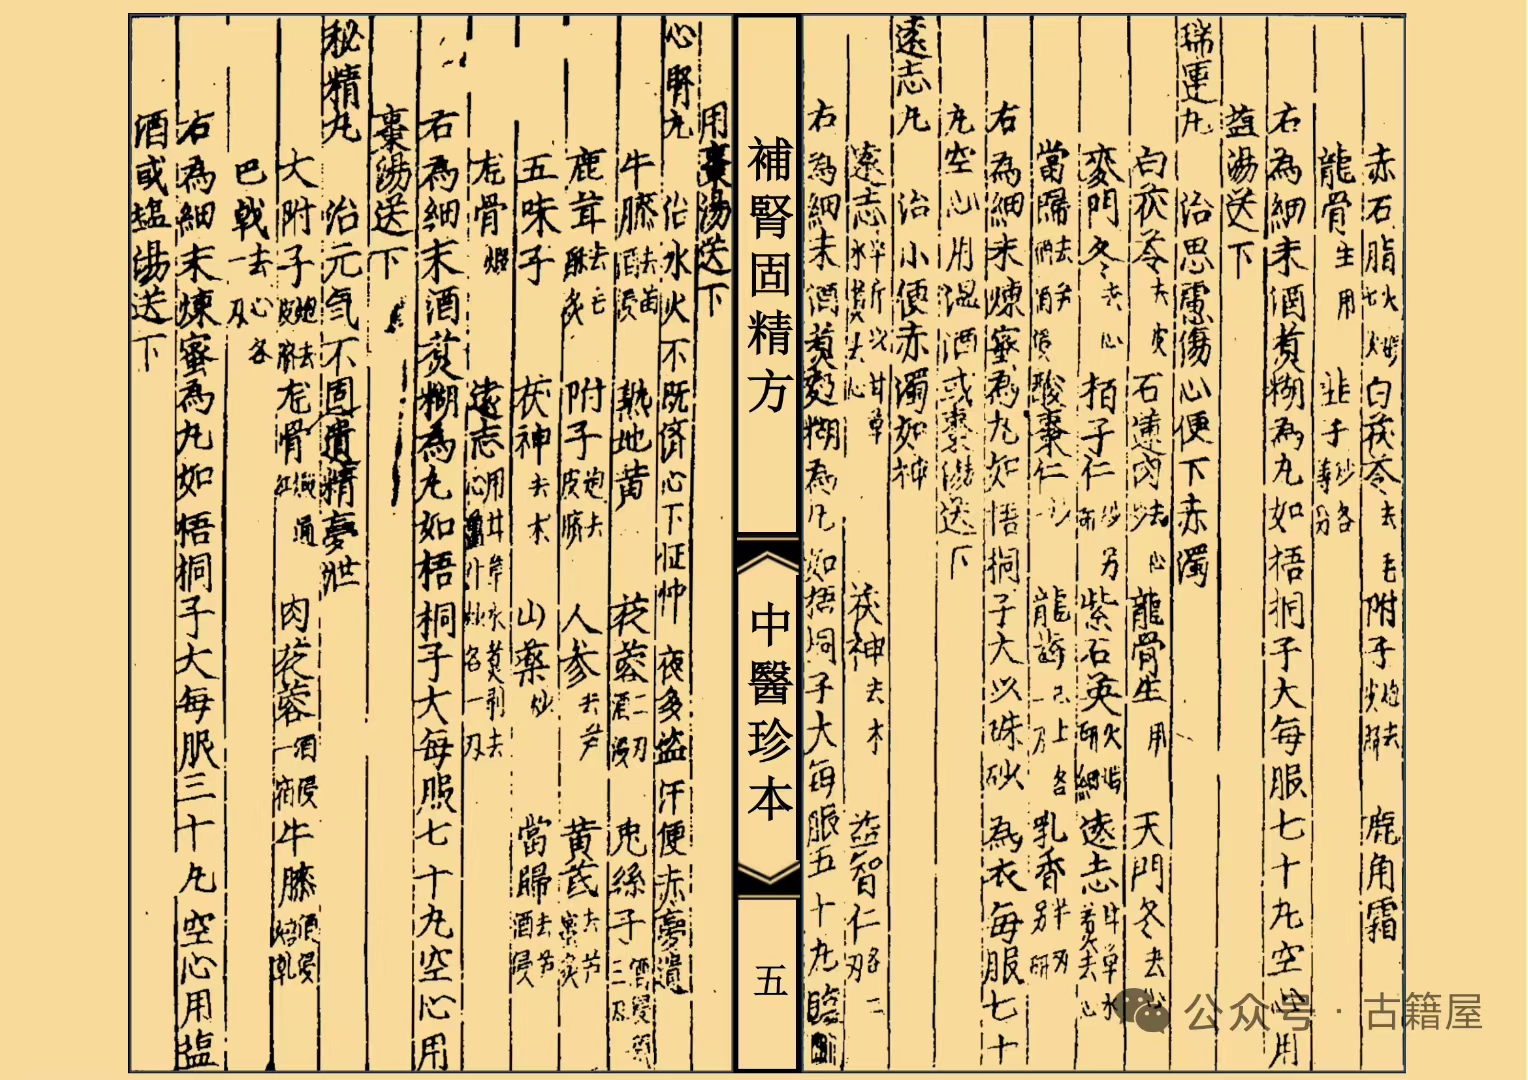 赤石脂火煅七次 白茯苓去毛 附子炮去尖臍 鹿角霜
龍骨生用 韭子炒各等分
右為細末酒煮糊為丸如梧桐子大每服七十丸空心用
盐湯送下
瑞蓮丸 治思慮傷心便下赤濁
白茯苓去皮 石蓮肉去心炒 龍骨生用 天門冬去心
麥門冬去心 栢子仁炒另研 紫石英火煅研細 遠志甘草水煮去心
當歸去芦酒浸 酸棗仁炒 龍齒已上各一刃 乳香半刃另研
右為細末煉蜜為丸如梧桐子大以珠砂為衣每服七十
丸空心用温酒或棗湯送下
遠志丸 治小便赤濁如神
遠志半斤以甘草水煮去心 茯神去木 益智仁各二刃
右為細末酒煮麪糊為丸如梧桐子大每服五十丸臨
用棗湯送下
心腎丸 治水火不既濟心下怔忡夜多盗汗便赤夢遺
牛膝去苗酒浸 熟地黄 苁蓉二刃酒浸 兎絲子三刃
鹿茸去毛酥炙 附子炮去皮臍 人参去芦 黄芪去芦蜜炙
五味子 茯神去木 山薬炒 當歸去芦酒浸
龙骨煅 遠志用甘草水煮剥去心 各一刃
右為細末酒煮糊為丸如梧桐子大每服七十丸空心用
棗湯送下
秘精丸 治元气不固遺精夢泄
大附子炮去皮臍 龙骨煅通紅 肉苁蓉酒浸一宿 牛膝酒浸焙乾
巴戟去心各一刃
右為細末煉蜜為丸如梧桐子大每服三十丸空心用塩
酒或塩湯送下
補腎固精方
中醫珍本
五
公众号·古籍屋